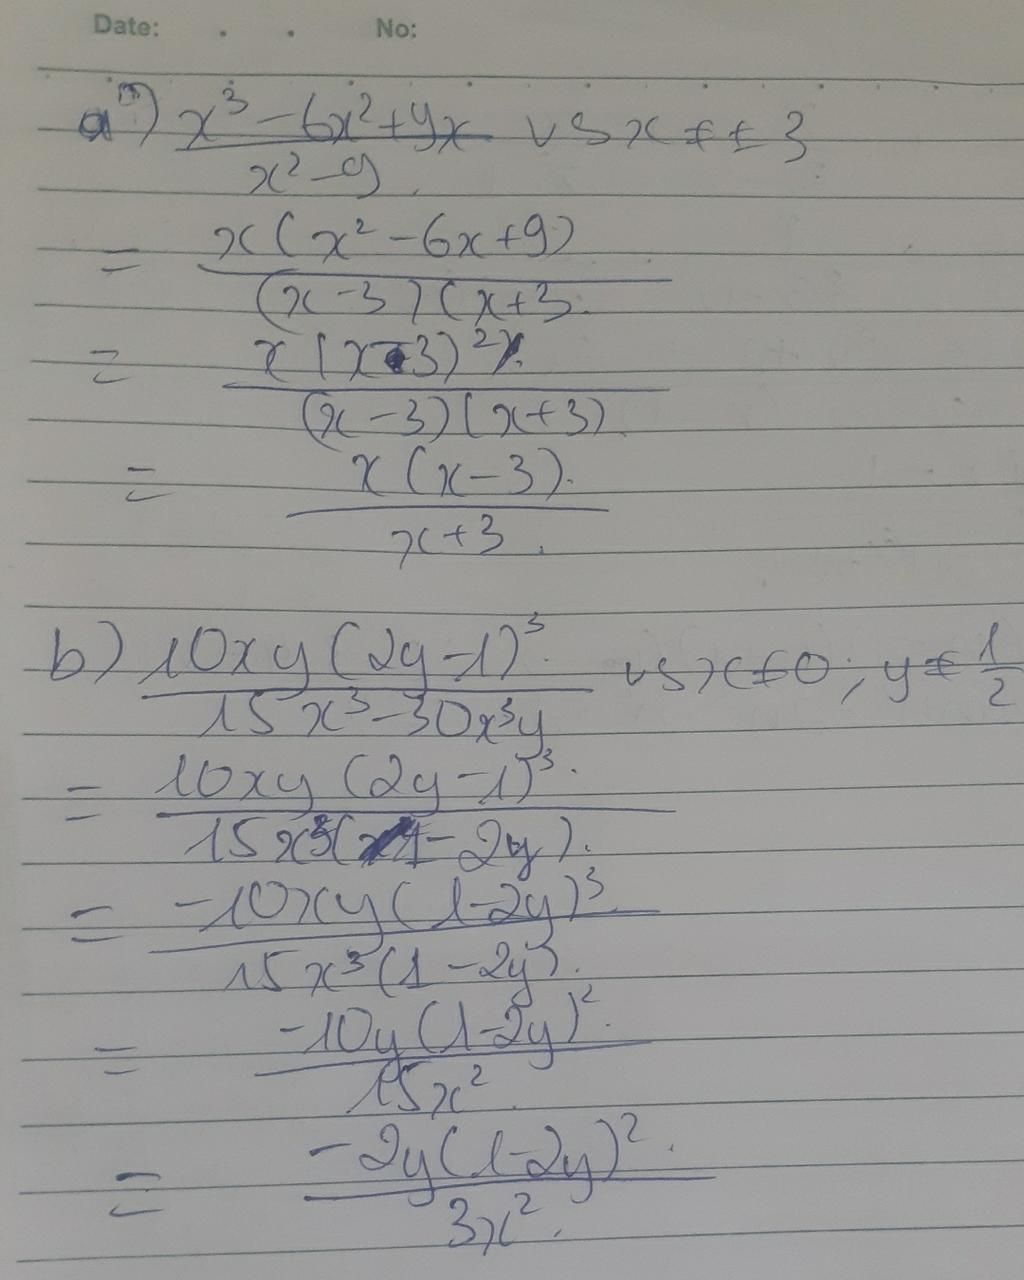 Date: . . No:
a) \frac{x^3 - 6x^2 + 9x}{x^2 - 9} vs x ≠ ± 3
= \frac{x(x^2 - 6x + 9)}{(x - 3)(x + 3}
= \frac{x(x - 3)^2}{(x - 3)(x + 3)}
= \frac{x(x - 3)}{x + 3}.
b) \frac{10xy(2y - 1)^3}{15x^3 - 30x^3y} vs x ≠ 0; y ≠ \frac{1}{2}
= \frac{10xy(2y - 1)^3}{15x^3(1 - 2y)}.
= \frac{-10xy(1 - 2y)^3}{15x^3(1 - 2y)}.
= \frac{-10y(1 - 2y)^2}{15x^2}.
= \frac{-2y(1 - 2y)^2}{3x^2}.